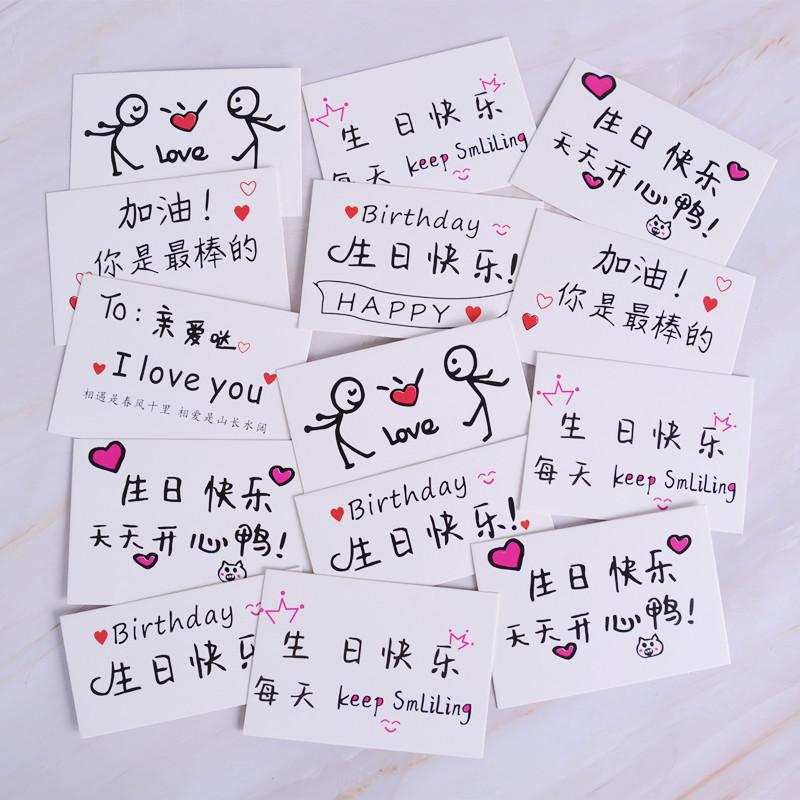 Love
生日快乐
每天 keep SmLiLing
生日快乐
天天开心鸭!
加油!
你是最棒的
Birthday
生日快乐!
HAPPY
加油!
你是最棒的
To: 亲爱哒
I love you
相遇是春风十里 相爱是山长水阔
Love
生日快乐
每天 keep SmLiLing
生日快乐
天天开心鸭!
Birthday
生日快乐!
生日快乐
天天开心鸭!
Birthday
生日快乐
生日快乐
每天 keep SmLiLing